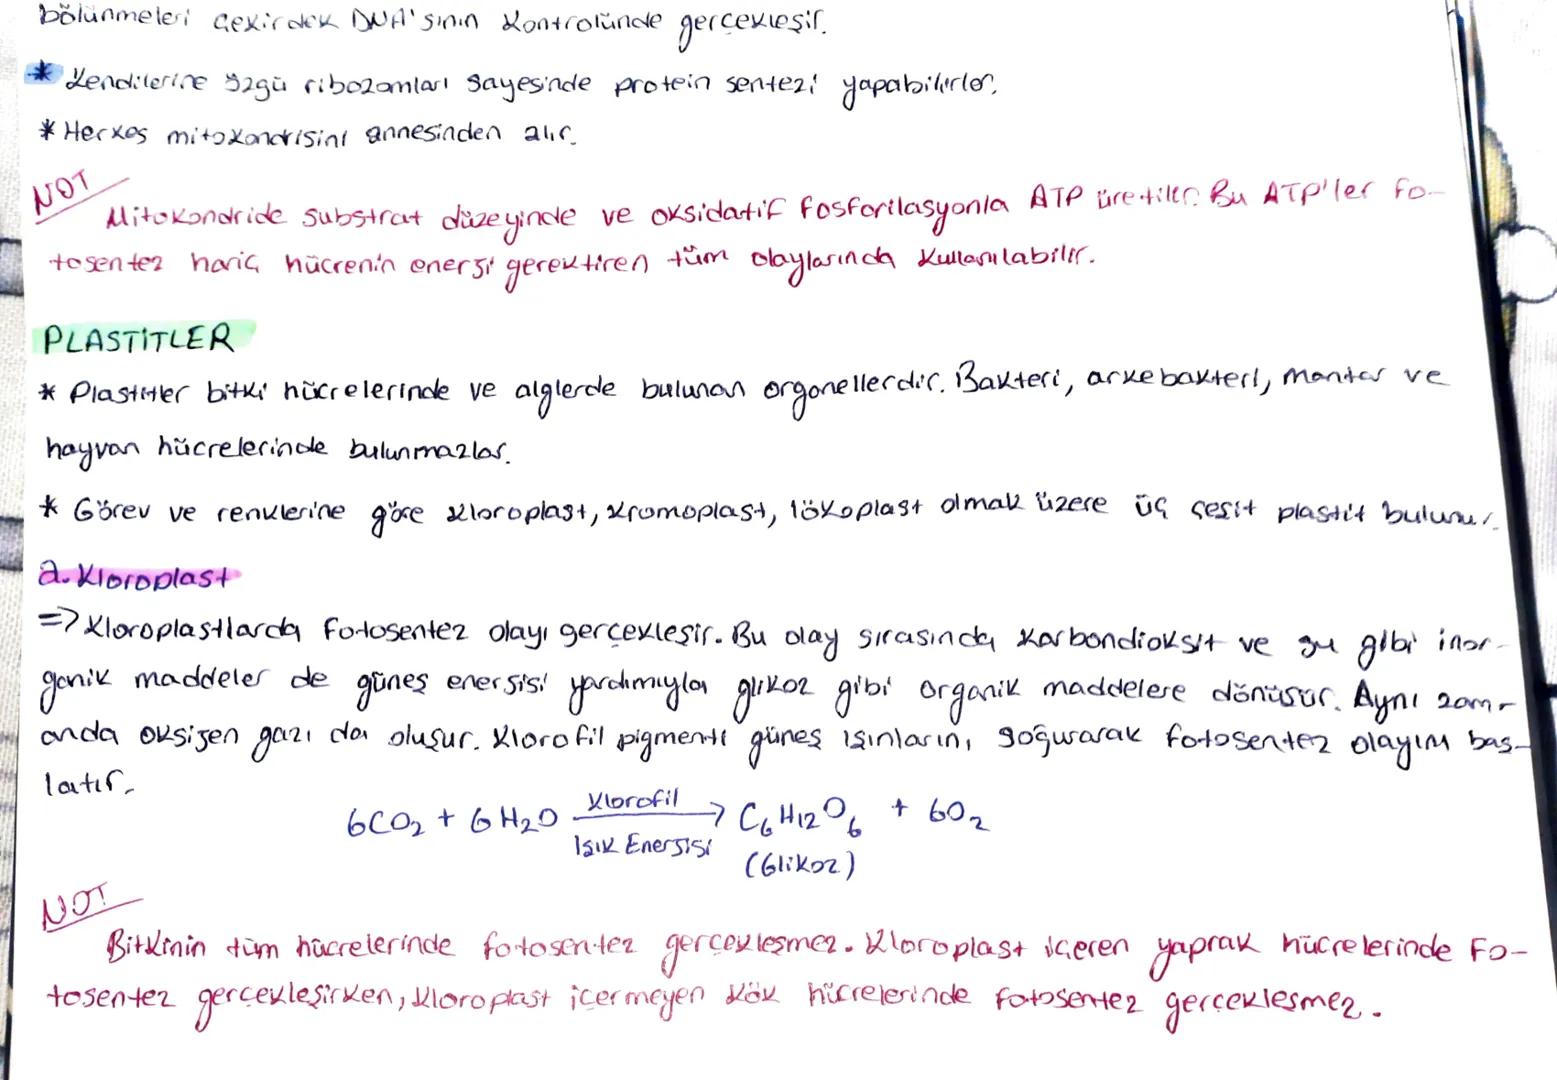 bölünmeleri çekirdek DNA'sının kontrolünde gerçekleşir.
* Kendilerine özgü ribozomları sayesinde protein sentezi yapabilirler.
* Herkes mitokondrisini annesinden alır.
NOT
Mitokondride substrat düzeyinde ve oksidatif fosforilasyonla ATP üretilir. Bu ATP'ler fo-
tosentez hariç hücrenin enerji gerektiren tüm olaylarında kullanılabilir.
PLASTİTLER
* Plastitler bitki hücrelerinde ve alglerde bulunan organellerdir. Bakteri, arkebakteri, mantar ve
hayvan hücrelerinde bulunmazlar.
* Görev ve renklerine göre kloroplast, kromoplast, lökoplast olmak üzere üç çeşit plastit bulunur.
a. Kloroplast
=> Kloroplastlarda fotosentez olayı gerçekleşir. Bu olay sırasında karbondioksit ve su gibi inor-
ganik maddeler de güneş enerjisi yardımıyla glikoz gibi organik maddelere dönüşür. Aynı zam-
anda oksijen gazı da oluşur. Klorofil pigmenti güneş ışınlarını soğurarak fotosentez olayını baş-
latır.
6CO₂ + 6H₂O Klorofil → C₆H₁₂O₆ + 6O₂
Işık Enerjisi (Glikoz)
NOT
Bitkinin tüm hücrelerinde fotosentez gerçekleşmez. Kloroplast içeren yaprak hücrelerinde fo-
tosentez gerçekleşirken, kloroplast içermeyen kök hücrelerinde fotosentez gerçekleşmez.